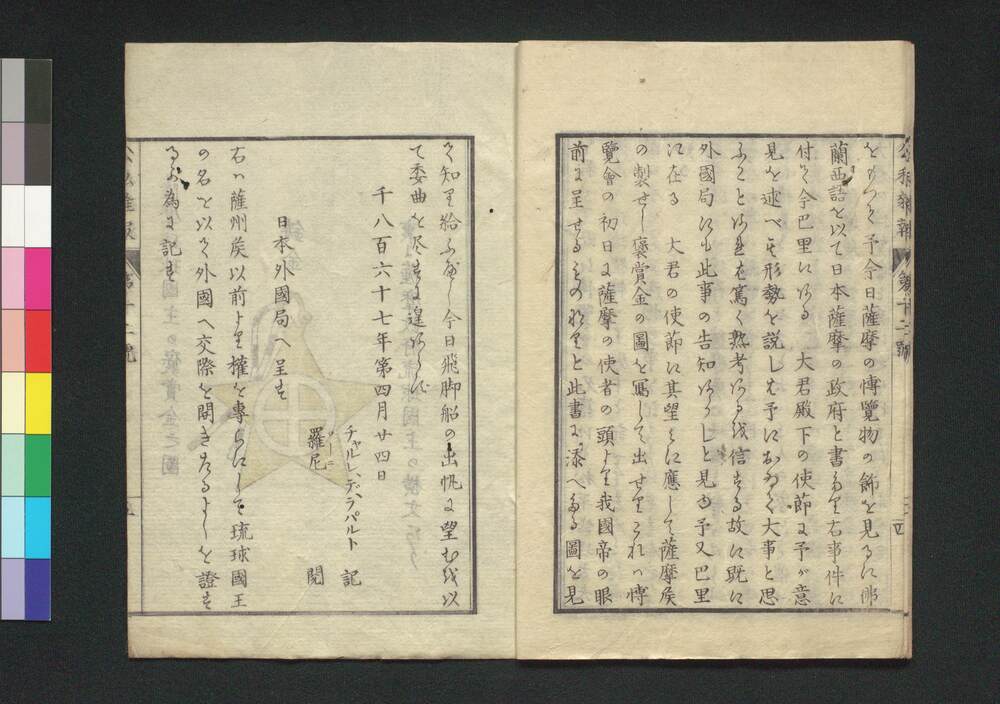 をもつて予今日薩摩の博覽物の飾を見るに佛
蘭西語を以て日本薩摩の政府と書あり右事件に
付て今巴里にある　大君殿下の使節に予が意
見を述べ其形勢を説しむ予におゐて大事と思
ふことあれども篤く熟考ある我信ずる故に既に
外國局にも此事の告知ありしと見ゆ予又巴里
に在る　大君の使節に其望みに應じて薩摩侯
の製せし褒賞金の圖を寫して出せりこれハ博
覽會の初日に薩摩の使者の頭より我國帝の眼
前に呈せるものなりと此書に添へたる圖を見
て知り給ふべし今日飛脚船の出帆に望むを以
て委曲を尽すに遑あらず
千八百六十七年第四月廿四日
チャルレ、デ、ラパルト　記
羅尼　閲
日本外國局へ呈す
右ハ薩州侯以前より權を專らにして琉球國王
の名を以て外國へ交際を開きたるよしを證す
る為に記す